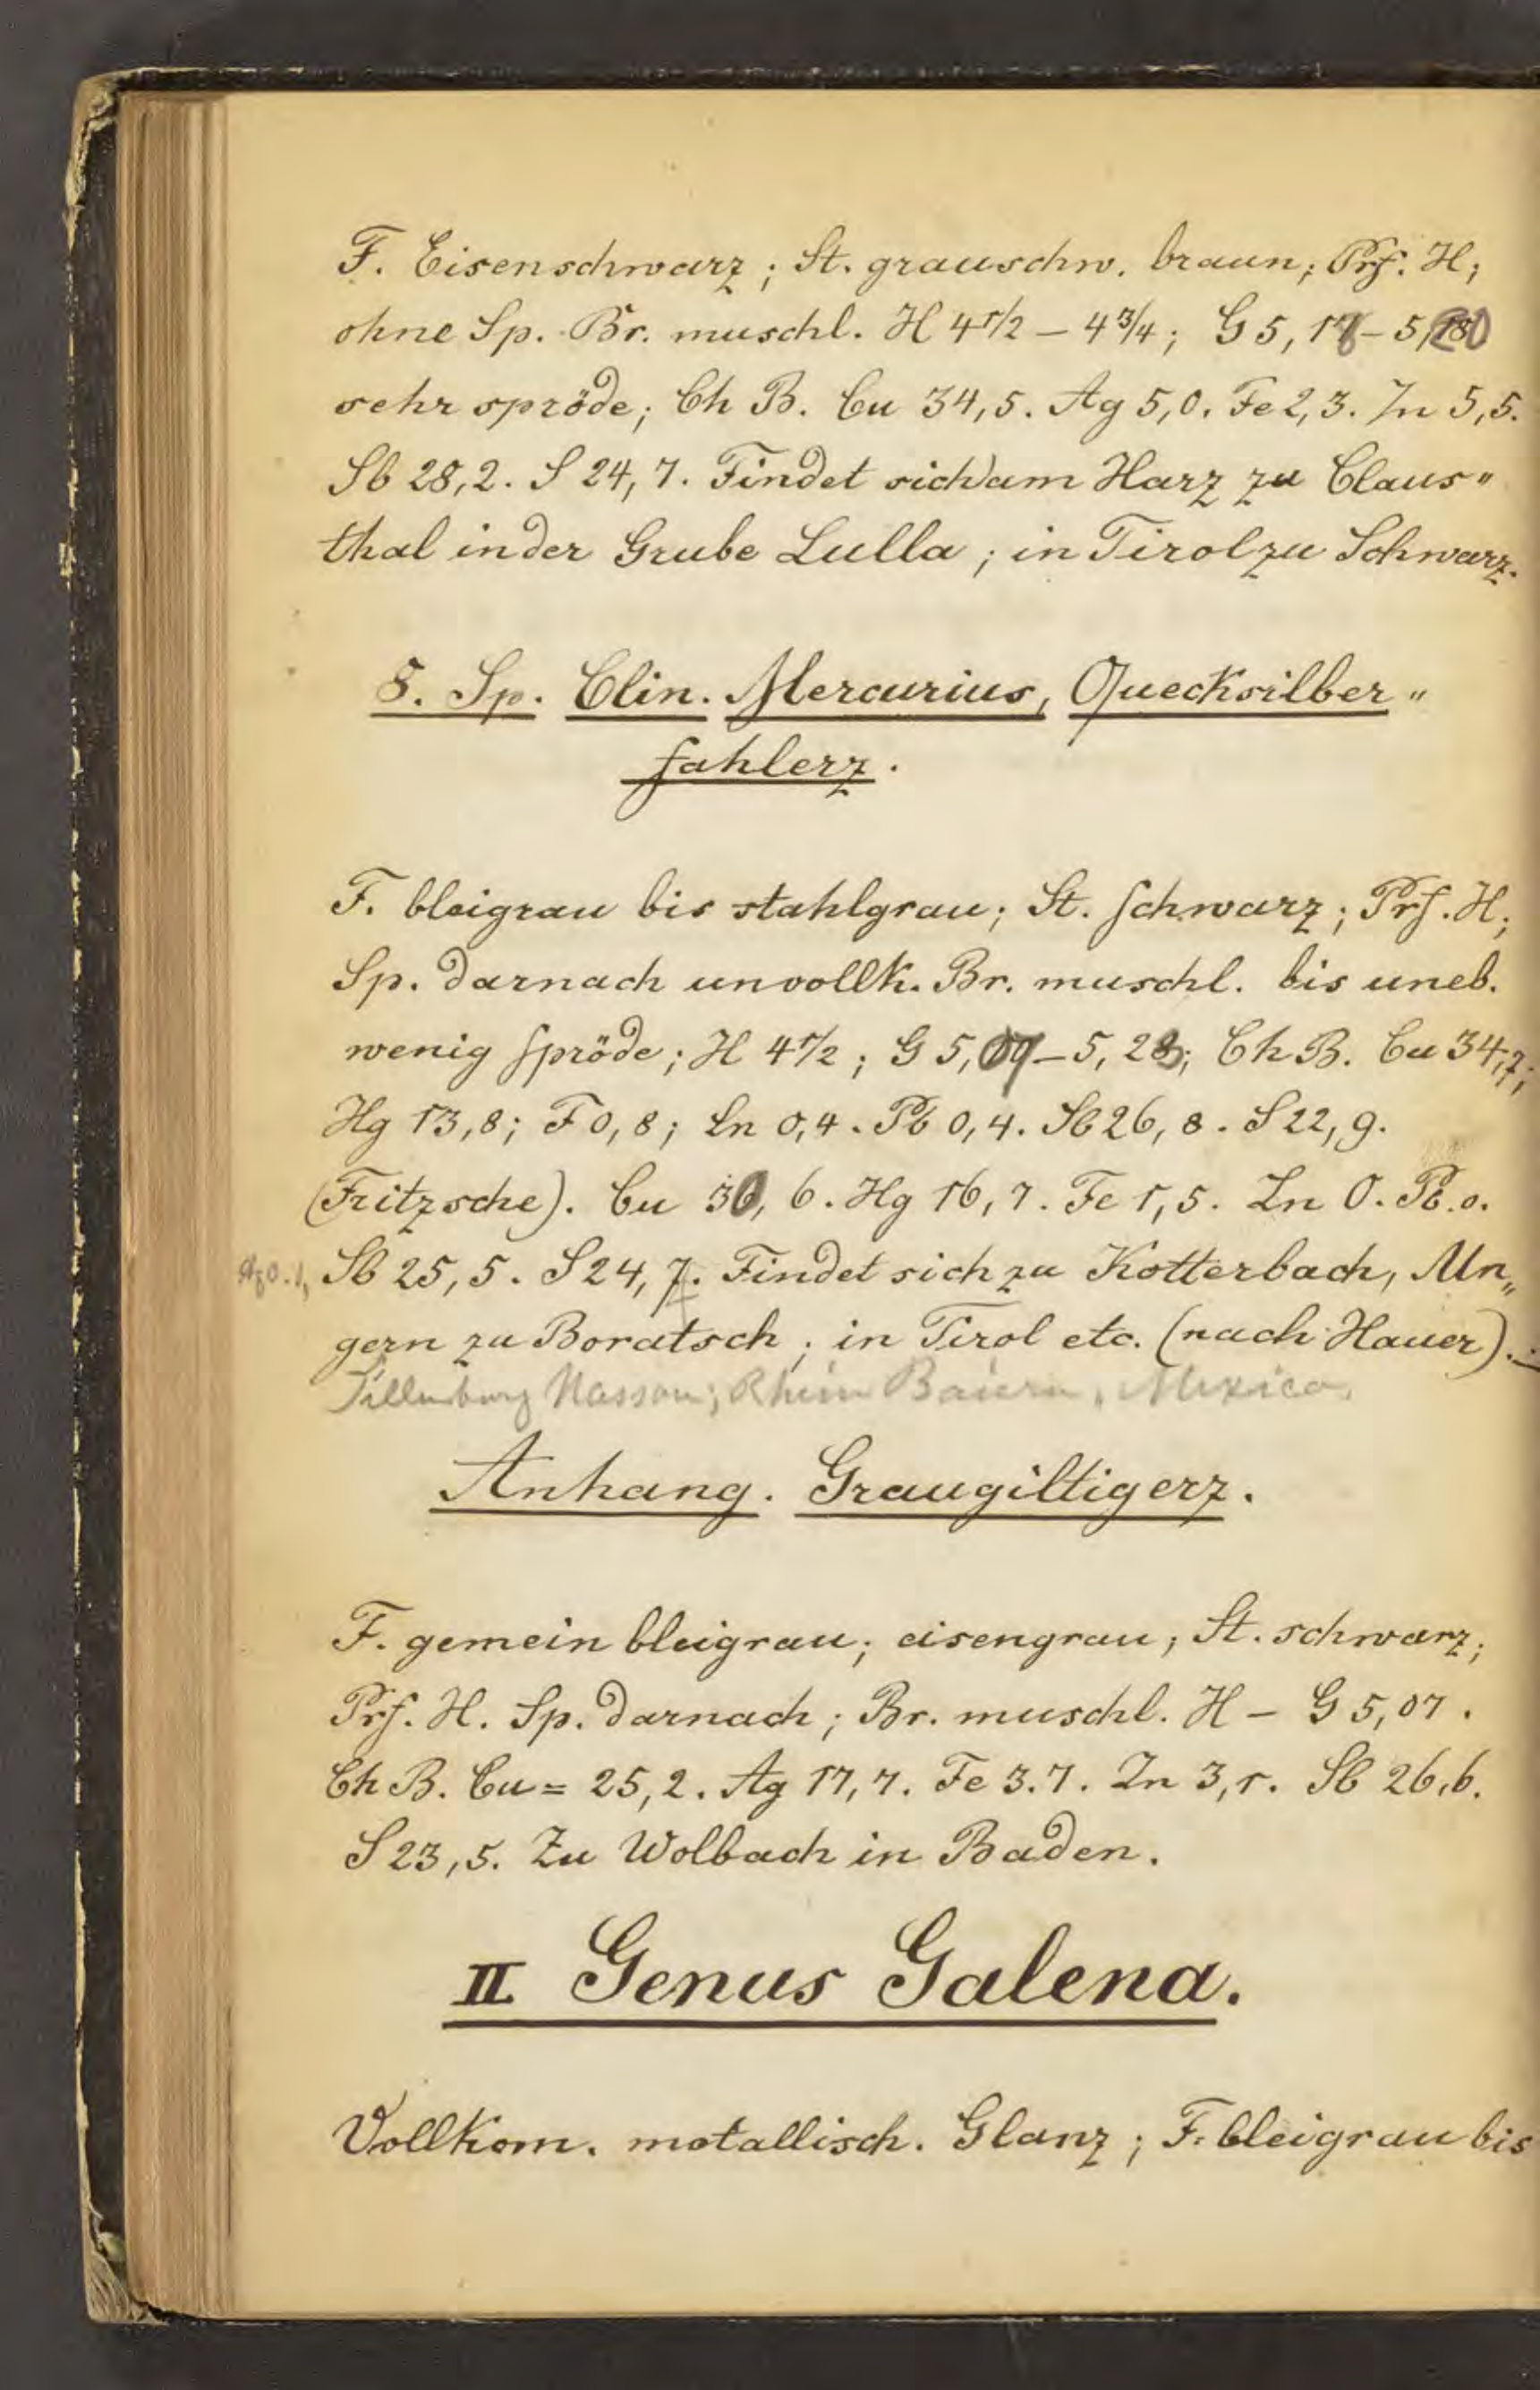 F. Eisenschwarz; St. grauschw. braun; Prf. H;
ohne Sp. Br. muschl. H 4 1/2 – 4 3/4; G 5,
sehr spröde; Ch B. Cu 34,5. Ag 5,0. Fe 2,3. Zn 5,5.
Sb 28,2. S 24,7. Findet sich am Harz zu Claus„
thal in der Grube Lulla; in Tirol zu Schwarz.
5. Sp. Clin. Mercurius, Quecksilber„
fahlerz.
F. bleigrau bis stahlgrau; St. schwarz; Prf. H;
Sp. darnach unvollk. Br. muschl. bis uneb.
wenig spröde; H 4 1/2; G 5, – 5,28; Ch B. Cu 34,7;
Hg 13,8; F 0,8; Zn 0,4. Pb 0,4. Sb 26,8. S 22,9.
(Fritzsche). Cu 30,6. Hg 16,7. Fe 1,5. Zn 0. Pb. 0.
Sb 25,5. S 24,7. Findet sich zu Kotterbach, Un„
gern zu Boratsch; in Tirol etc. (nach Hauer).
Dillenburg Nassau; Rhein Baiern, Mexico.
Anhang. Graugiltigerz.
F. gemein bleigrau; eisengrau; St. schwarz;
Prf. H. Sp. darnach; Br. muschl. H – G 5,07.
Ch B. Cu = 25,2. Ag 17,7. Fe 3.7. Zn 3,1. Sb 26,6.
S 23,5. Zu Wolbach in Baden.
II Genus Galena.
Vollkom. metallisch. Glanz; F. bleigrau bis